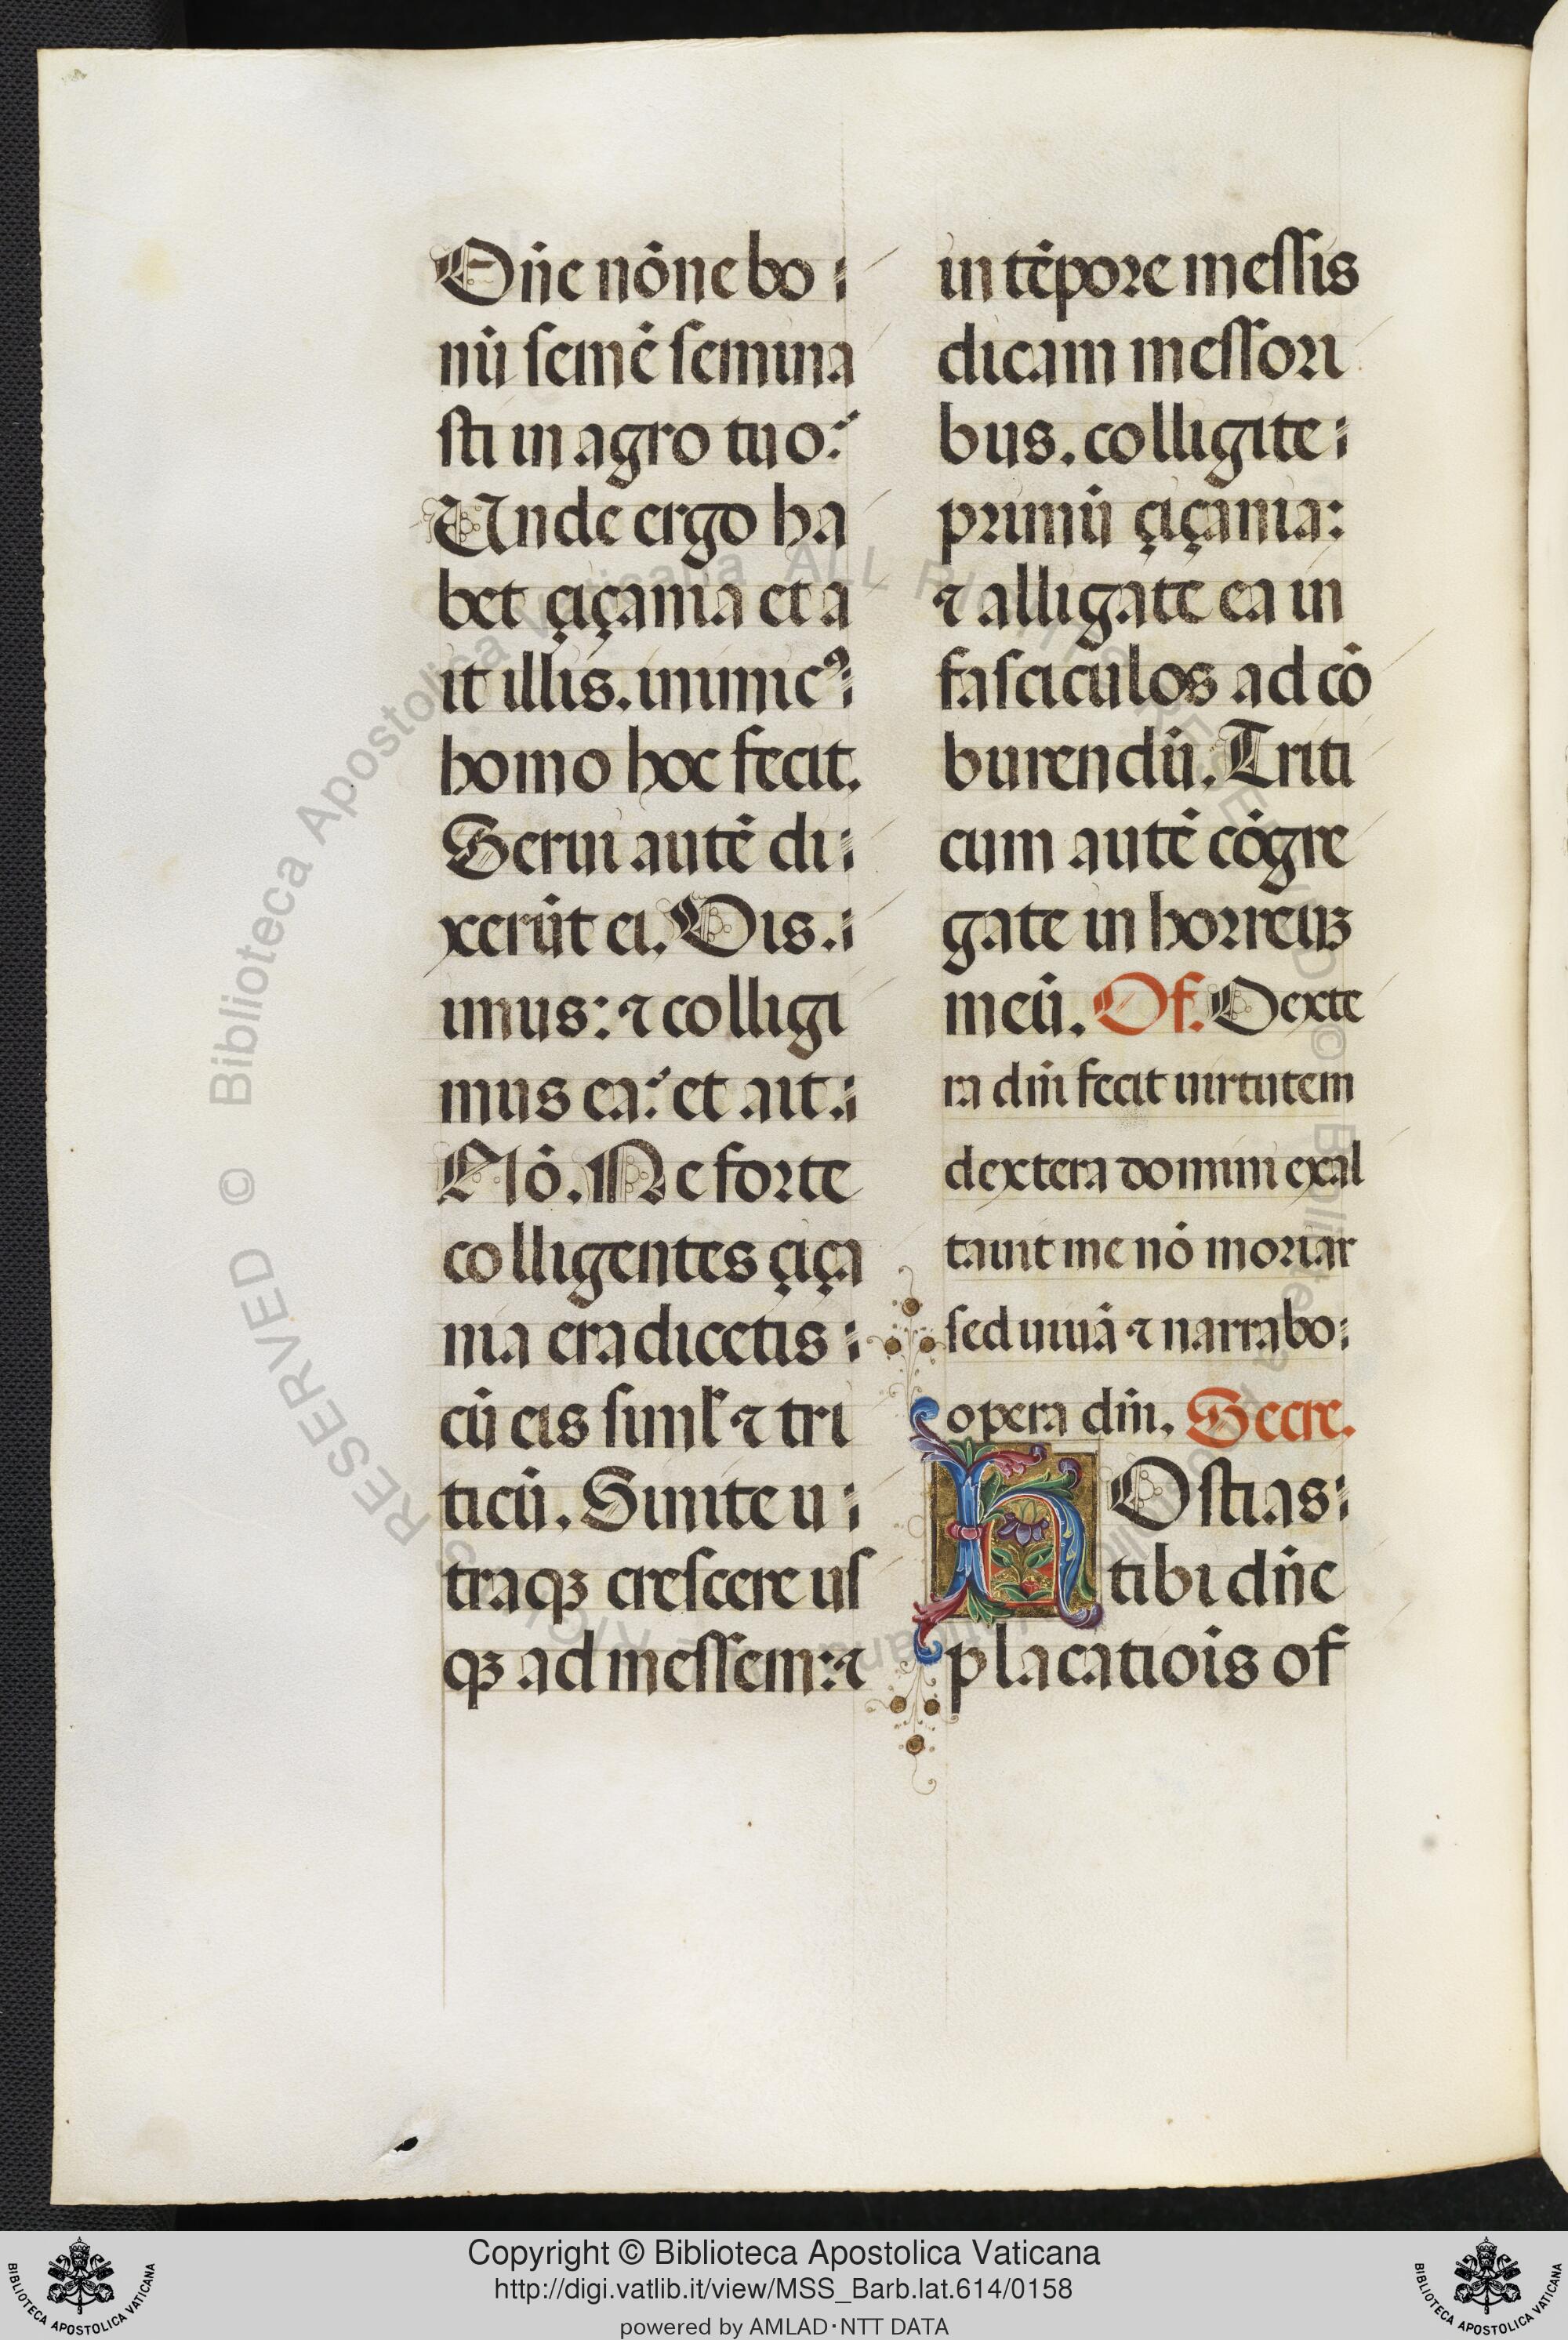 Dñe nõne bo
nũ semẽ semina
sti in agro tuo:
Unde ergo ha
bet çiçania et a
it illis. inimicꝰ
homo hoc fecit.
Serui autẽ di
xerũt ei. Vis.
imus: ⁊ colligi
mus ea: et ait.
Illis. Nõ. Ne forte
colligentes çiça
nia eradicetis
cũ eis siml ⁊ tri
ticũ. Sinite u
traqꝫ crescere us
qꝫ ad messem: ⁊
in tẽpore messis
dicam messori
bus. colligite
primũ çiçania:
⁊ alligate ea in
fasciculos ad cõ
burendũ. Triti
cum autẽ cõgre
gate in horreuꝫ
meũ. Of. Dexte
ra dñi fecit uirtutem
dextera domini exal
tauit me nõ moriar
sed uiuã ⁊ narrabo
opera dñi. Secre.
hOstias
tibi dñe
placatiõis of
Copyright © Biblioteca Apostolica Vaticana
http://digi.vatlib.it/view/MSS_Barb.lat.614/0158
powered by AMLAD·NTT DATA
BIBLIOTECA APOSTOLICA VATICANA
BIBLIOTECA APOSTOLICA VATICANA